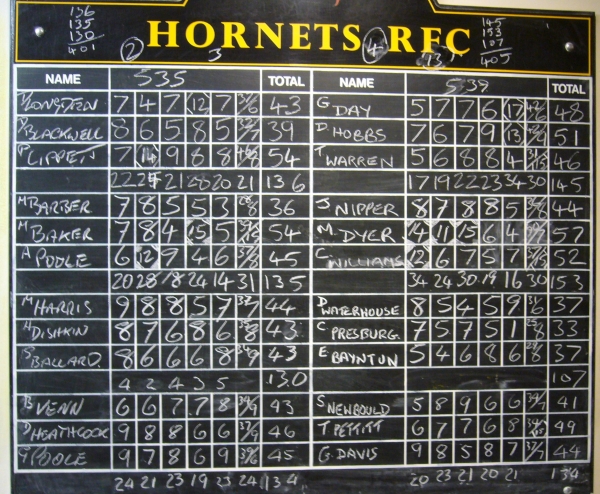 136
135
130
401
2
HORNETS RFC
3
4
13
145
153
107
405
NAME 535 TOTAL NAME 539 TOTAL
7 4 7 12 7 43 G DAY 5 7 7 6 17 48
BLACKWELL 8 6 5 8 5 39 D HOBBS 7 6 7 9 13 51
7 14 9 8 8 54 T WARREN 5 6 8 8 4 46
22 21 28 20 21 136 17 19 22 23 34 30 145
M BARBER 7 8 5 5 3 36 J NIPPER 8 7 8 8 5 44
M BAKER 7 8 4 15 5 54 M DYER 14 11 15 6 4 57
A POOLE 6 12 9 4 6 45 C WILLIAMS 12 6 7 5 7 52
20 28 18 24 14 31 135 34 24 30 19 16 30 153
M HARRIS 9 8 8 5 7 44 D WATERHOUSE 8 5 4 5 9 37
A DISHKIN 8 7 6 8 6 43 C PRESBURG 7 5 7 5 1 33
S BALLARD 8 6 6 6 8 43 E BAYNTON 5 4 6 8 6 37
4 2 4 3 5 130 107
B VENN 6 6 7 7 8 43 S NEWBOULD 5 8 9 6 6 41
HEATHCOCK 9 8 8 6 6 46 T PETTITT 6 7 7 6 8 49
POOLE 9 7 8 6 9 45 G. DAVIS 9 8 5 8 7 44
24 21 23 19 23 24 134 20 23 21 20 21 134